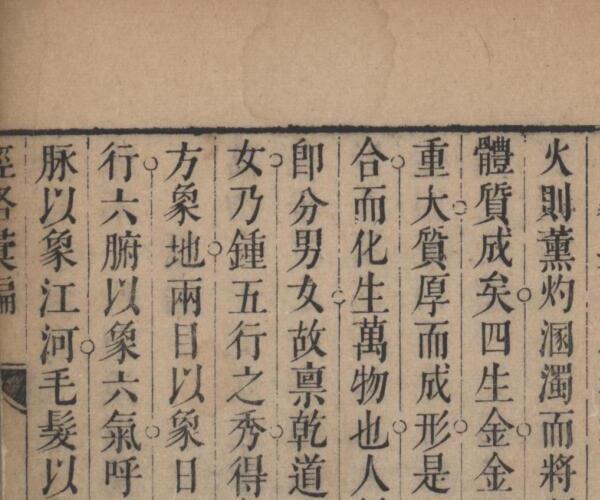 火則薰灼溷濁而將
體質成矣四生金金
重大質厚而成形是
合而化生萬物也人
卽分男女故禀乾道
女乃鍾五行之秀得
方象地兩目以象日
行六腑以象六氣呼
脉以象江河毛髮以
經絡彙編